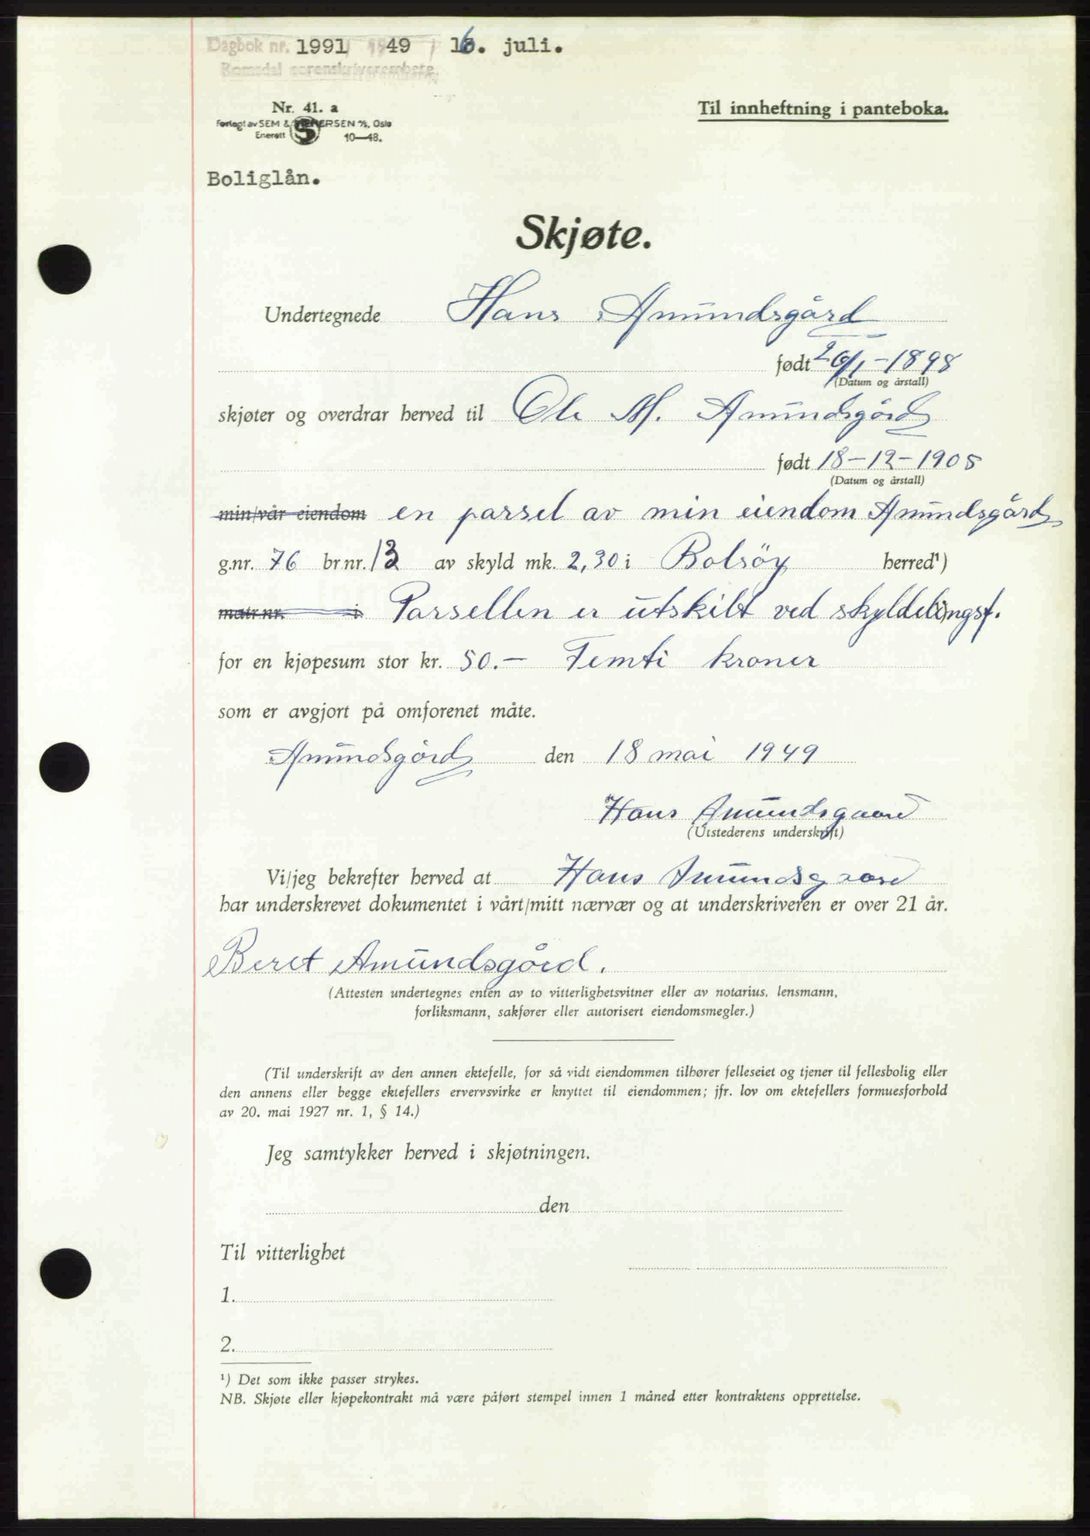 Dagbok nr. 1991 1949 16. juli.
Romsdal sorenskriverembete
Nr. 41. a
Forlagt av SEM & STENERSEN A/S, Oslo
Enerett 10—48.
Til innheftning i panteboka.
Boliglån.
Skjøte.
Undertegnede Hans Amundsgård
født 20/1-1898
(Datum og årstall)
skjøter og overdrar herved til Ole M. Amundsgård
født 18-12-1905
(Datum og årstall)
min/vår eiendom en parsel av min eiendom Amundsgård
g.nr. 76 br.nr. 13 av skyld mk. 2,30 i Bolsöy herred¹)
matr.nr. i Parsellen er utskilt ved skyldelingsf.
for en kjøpesum stor kr. 50.— Femti kroner
som er avgjort på omforenet måte.
Amundsgård den 18 mai 1949
Hans Amundsgaard
(Utstederens underskrift)
Vi/jeg bekrefter herved at Hans Amundsgaard
har underskrevet dokumentet i vårt/mitt nærvær og at underskriveren er over 21 år.
Beret Amundsgård.
(Attesten undertegnes enten av to vitterlighetsvitner eller av notarius, lensmann,
forliksmann, sakfører eller autorisert eiendomsmegler.)
(Til underskrift av den annen ektefelle, for så vidt eiendommen tilhører felleseiet og tjener til fellesbolig eller
den annens eller begge ektefellers ervervsvirke er knyttet til eiendommen; jfr. lov om ektefellers formuesforhold
av 20. mai 1927 nr. 1, § 14.)
Jeg samtykker herved i skjøtningen.
den
Til vitterlighet
1.
2.
¹) Det som ikke passer strykes.
NB. Skjøte eller kjøpekontrakt må være påført stempel innen 1 måned etter kontraktens opprettelse.